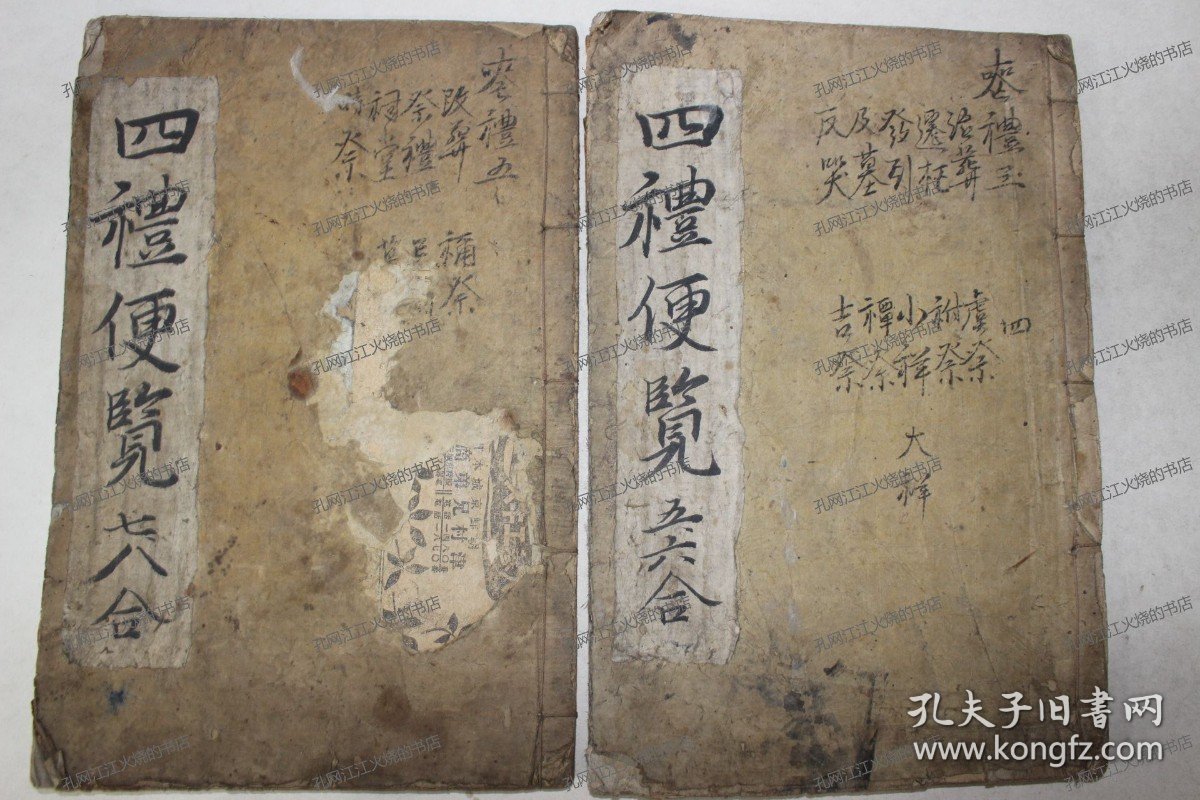 四禮便覽 七八合
喪禮五
改葬
祭禮
祠堂
時祭
禰祭
四禮便覽 五六合
喪禮三
治葬
遷柩
發引
及墓
反哭
四
虞祭
祔祭
小祥
大祥
禫祭
吉祭
孔网江江火烧的书店
孔夫子旧书网
www.kongfz.com